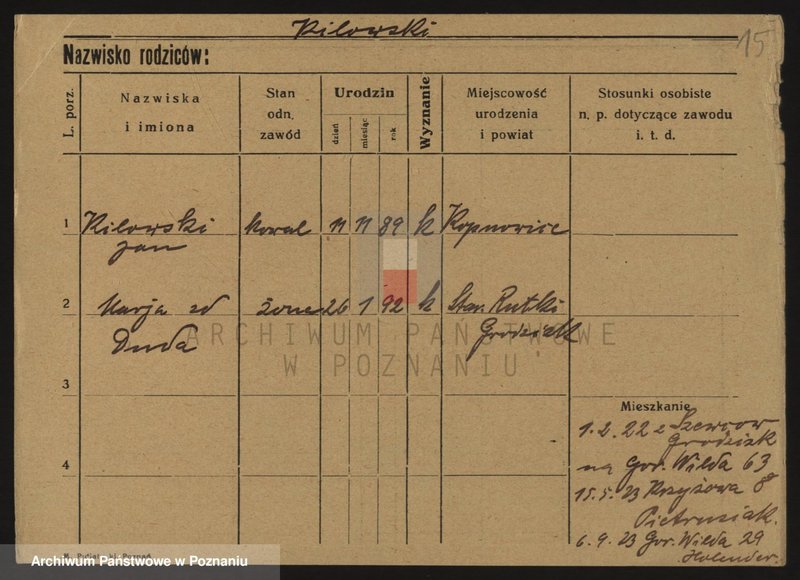 Kilowski
15
Nazwisko rodziców:
L. porz.
Nazwiska
i imiona
Stan
odn.
zawód
Urodzin
dzień
miesiąc
rok
Wyznanie
Miejscowość
urodzenia
i powiat
Stosunki osobiste
n. p. dotyczące zawodu
i. t. d.
1 Kilowski kowal 11 11 89 k
Jan
2 Marja zd żona 26 1 92 k Star. Rutki
Duda Grodzisk
3
4
ARCHIWUM PAŃSTWOWE
W POZNANIU
Mieszkanie
1.2.22 z Szewców
Grodzisk
na Gór. Wilda 63
15.5.23 Krzyżowa 8
Pietrusiak.
6.9.23 Gór. Wilda 29
Holender.
Archiwum Państwowe w Poznaniu